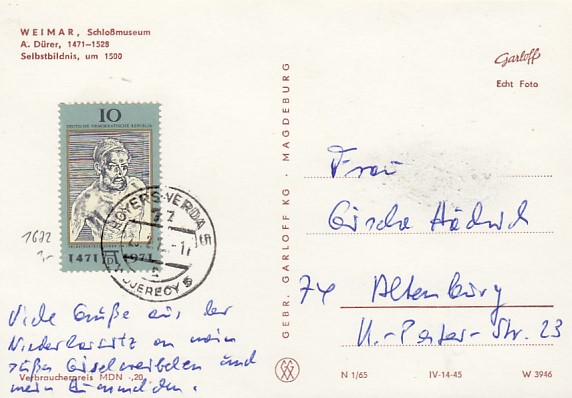 WEIMAR, Schloßmuseum
A. Dürer, 1471–1528
Selbstbildnis, um 1500
Garloff
Echt Foto
10
DEUTSCHE DEMOKRATISCHE REPUBLIK
1471 1971
HOYERSWERDA 5
77
WOJERECY
1672
1,-
GEBR. GARLOFF KG · MAGDEBURG
Frau
Gische Hädrich
74 Altenburg
Str. 23
Viele Grüße aus der
Niederlausitz an mein
süßes und
mein
Verbraucherpreis MDN -,20
N 1/65 IV-14-45 W 3946